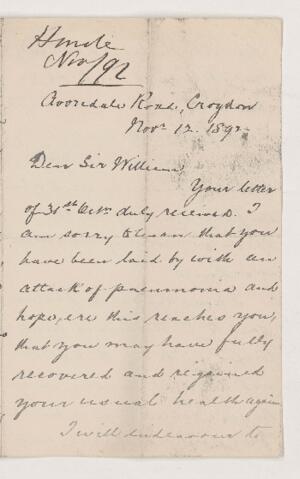 Hincle
Nov/92
Avondale Road, Croydon
Nov. 12. 1892
Dear Sir William,
Your letter
of 31st Octr. duly received. I
am sorry to learn that you
have been laid by with an
attack of pneumonia and
hope, ere this reaches you,
that you may have fully
recovered and regained
your usual health again
I will endeavour to